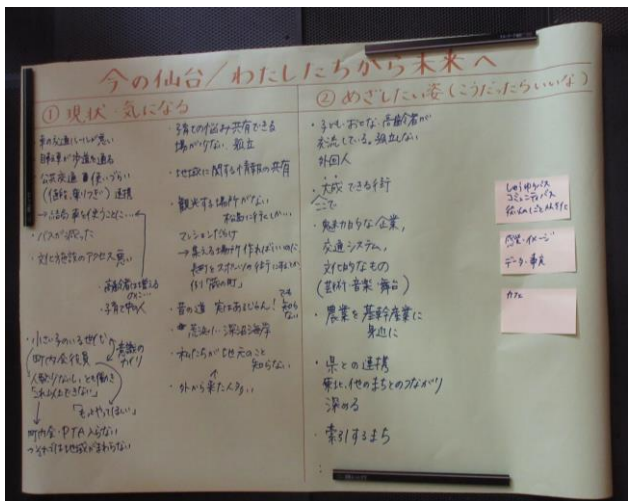 今の仙台/わたしたちから未来へ
① 現状・気になる
車の交通マナーが悪い
自転車が歩道を通る
公共交通 使いづらい
(値段、乗りつぎ) 連携
→ 車を使うことに…
・バスが減った
・文化施設のアクセス 悪い
・高齢者は増える
のに…
・子育て中の人
・小さい子のいる世代
町内会役員
意識の
とも働き
これ以上できない」
「もっとやってほしい」
町内会・PTA 入らない
→それでは地域がまわらない
・子育ての悩み共有できる
場が少ない 孤立
・地域に関する情報の共有
・観光する場所がない
松島に行くしかない
マンションだらけ
→集える場所 作ればいいのに
長町をスポーツの街に
・昔の道 実はあるじゃん! でも
知ら
ない
荒浜、深沼海岸
・私たちが地元のこと
知らない
↑
・外から来た人
② めざしたい姿(こうだったらいいな)
・子ども・おとな・高齢者が
交流している。孤立しない
外国人
・大成できる街
ここで
・魅力的な企業、
交通システム、
文化的なもの
(芸術・音楽・舞台)
・農業を基幹産業に
身近に
・県との連携
東北、他のまちとのつながり
深める
・索引するまち
コミュニティバス
データ・事実
カフェ